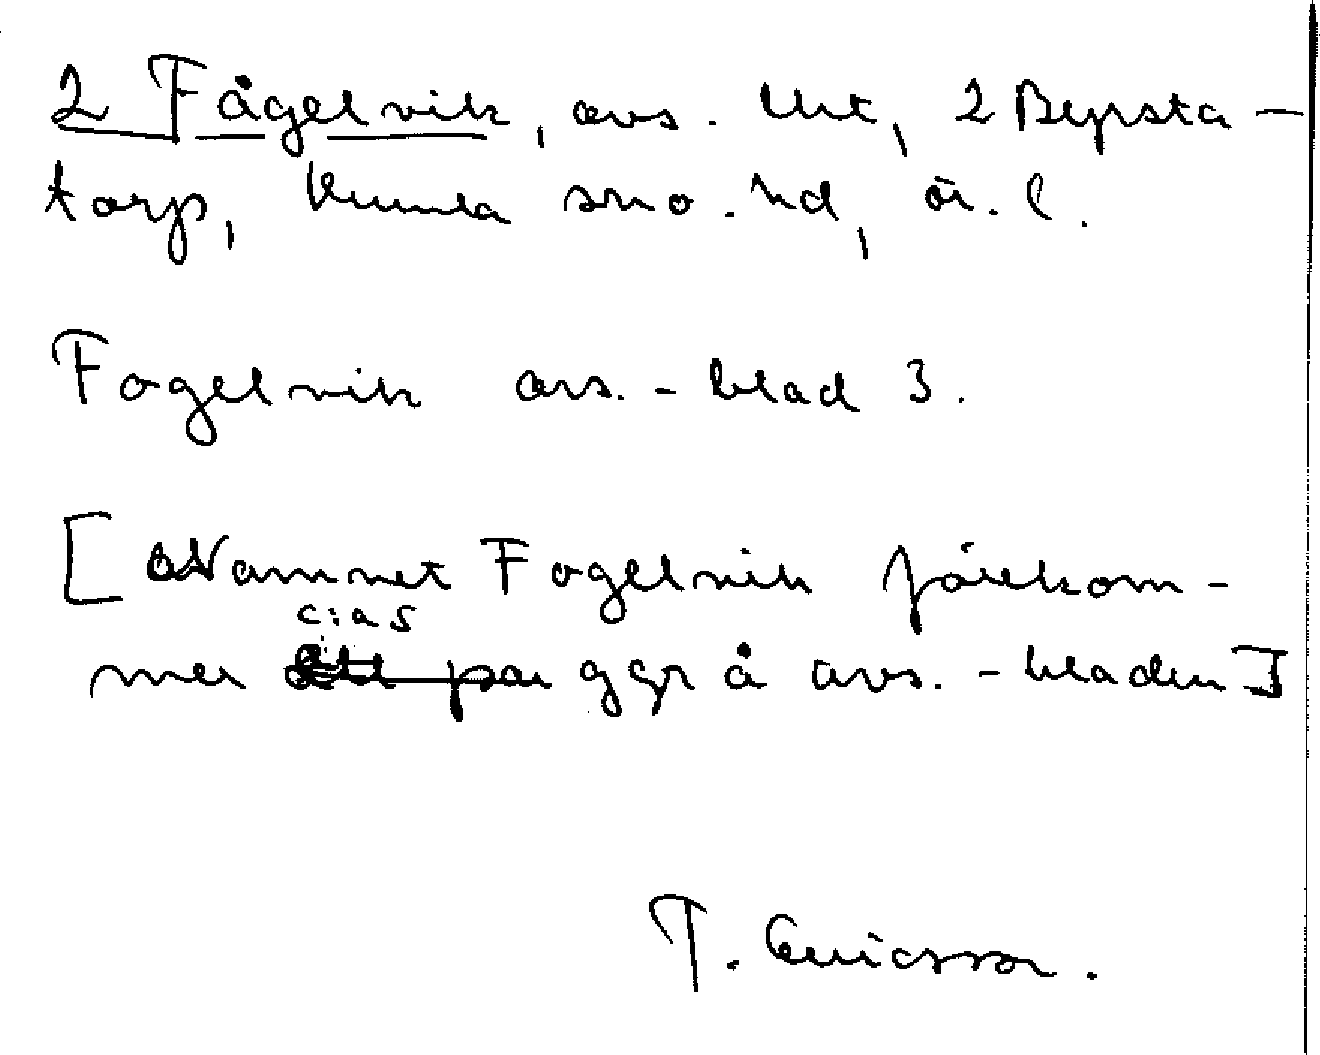 2 Fågelvik, avs. lht, 2 Byrsta-
torp, Kumla sn o. hd, ör. l.
Fogelvik avs.-blad 3.
[Namnet Fogelvik förekom-
c:a 5
mer ggr å avs.-bladen]
T. Ericsson.